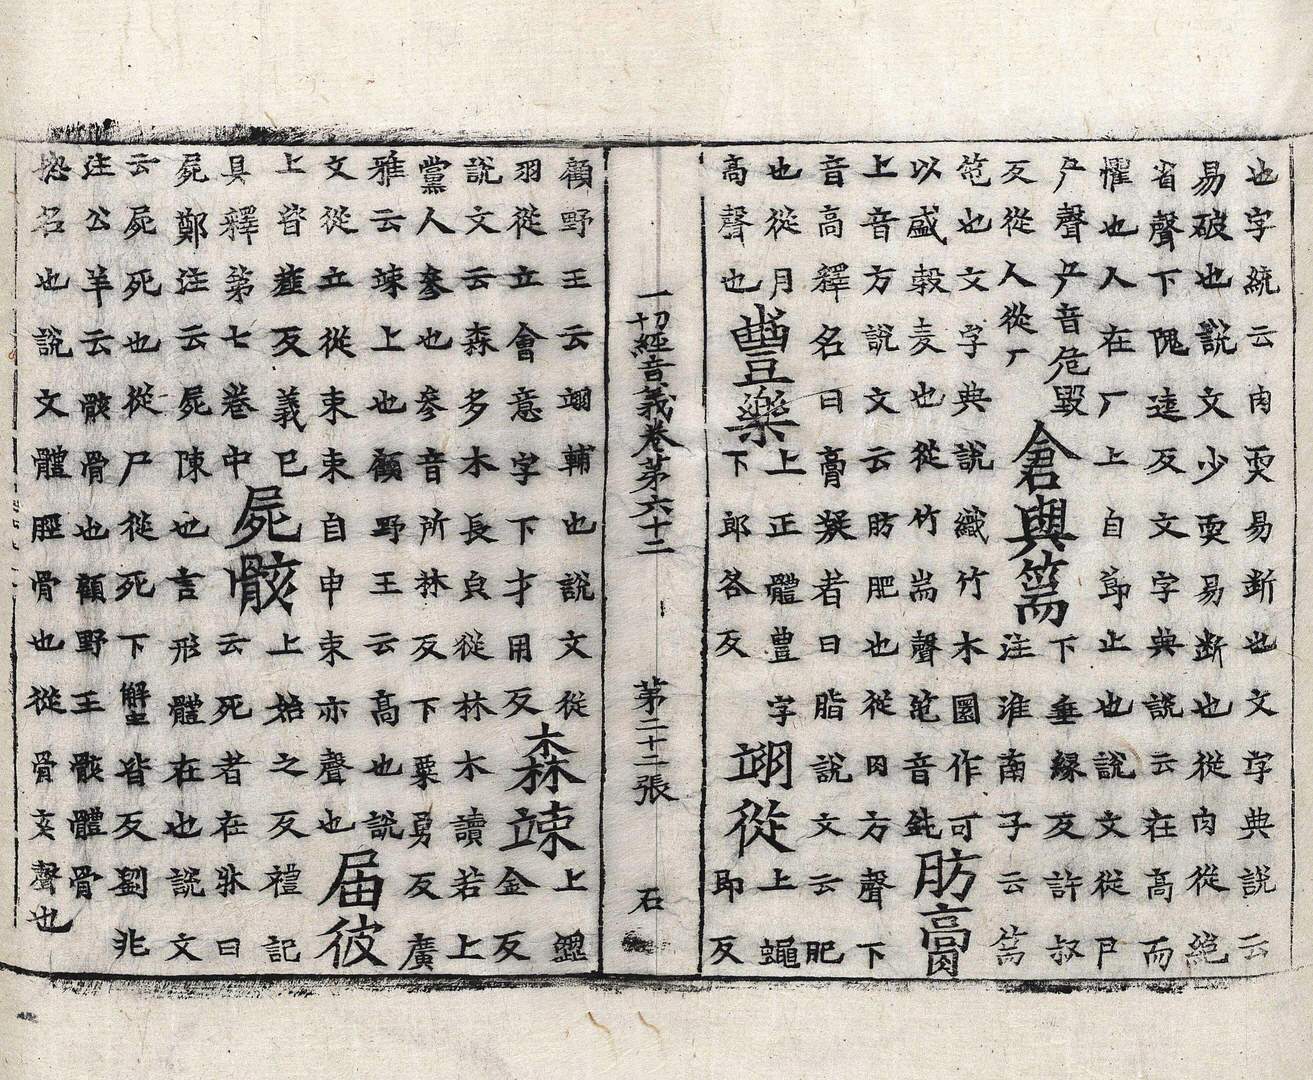 也字統云肉耎易断也文字典說云
易破也說文少耎易断也從肉從絕
省聲下隗逵反文字典說云在高而
懼也人在厂上自卪止也說文從尸
厃聲厃音危毀
反從人從厂
倉與篅
下垂緣反許叔
注淮南子云篅
笔也文字典說織竹木圌作可
以盛穀麦也從竹耑聲笔音鈍
肪膏
上音方說文云肪肥也從肉方聲下
音高釋名曰膏凝者曰脂說文云肥
也從月
高聲也
豐樂
上正體豊字
下郎各反
翊從
上蠅
即反
一切經音義卷第六十二 第二十二張 石
顧野王云翊輔也說文從
羽從立會意字下才用反
森竦
上澀
金反
說文云森多木長皃從林木讀若上
黨人參也參音所林反下粟勇反廣
雅云竦上也顧野王云高也說
文從立從束束自申束亦聲也
届彼
上皆薤反義已
具釋第七卷中
屍骸
上始之反禮記
云死者在牀曰
屍鄭注云屍陳也言形體在也說文
云屍死也從尸從死下解皆反劉兆
注公羊云骸骨也顧野王骸體骨
惣名也說文體脛骨也從骨亥聲也